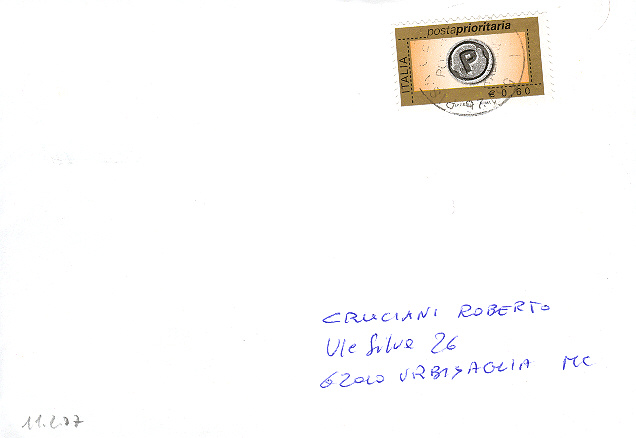 postaprioritaria
ITALIA
P
€ 0,60
CRUCIANI ROBERTO
Vle Silva 26
62010 URBISAGLIA MC
11.2.07